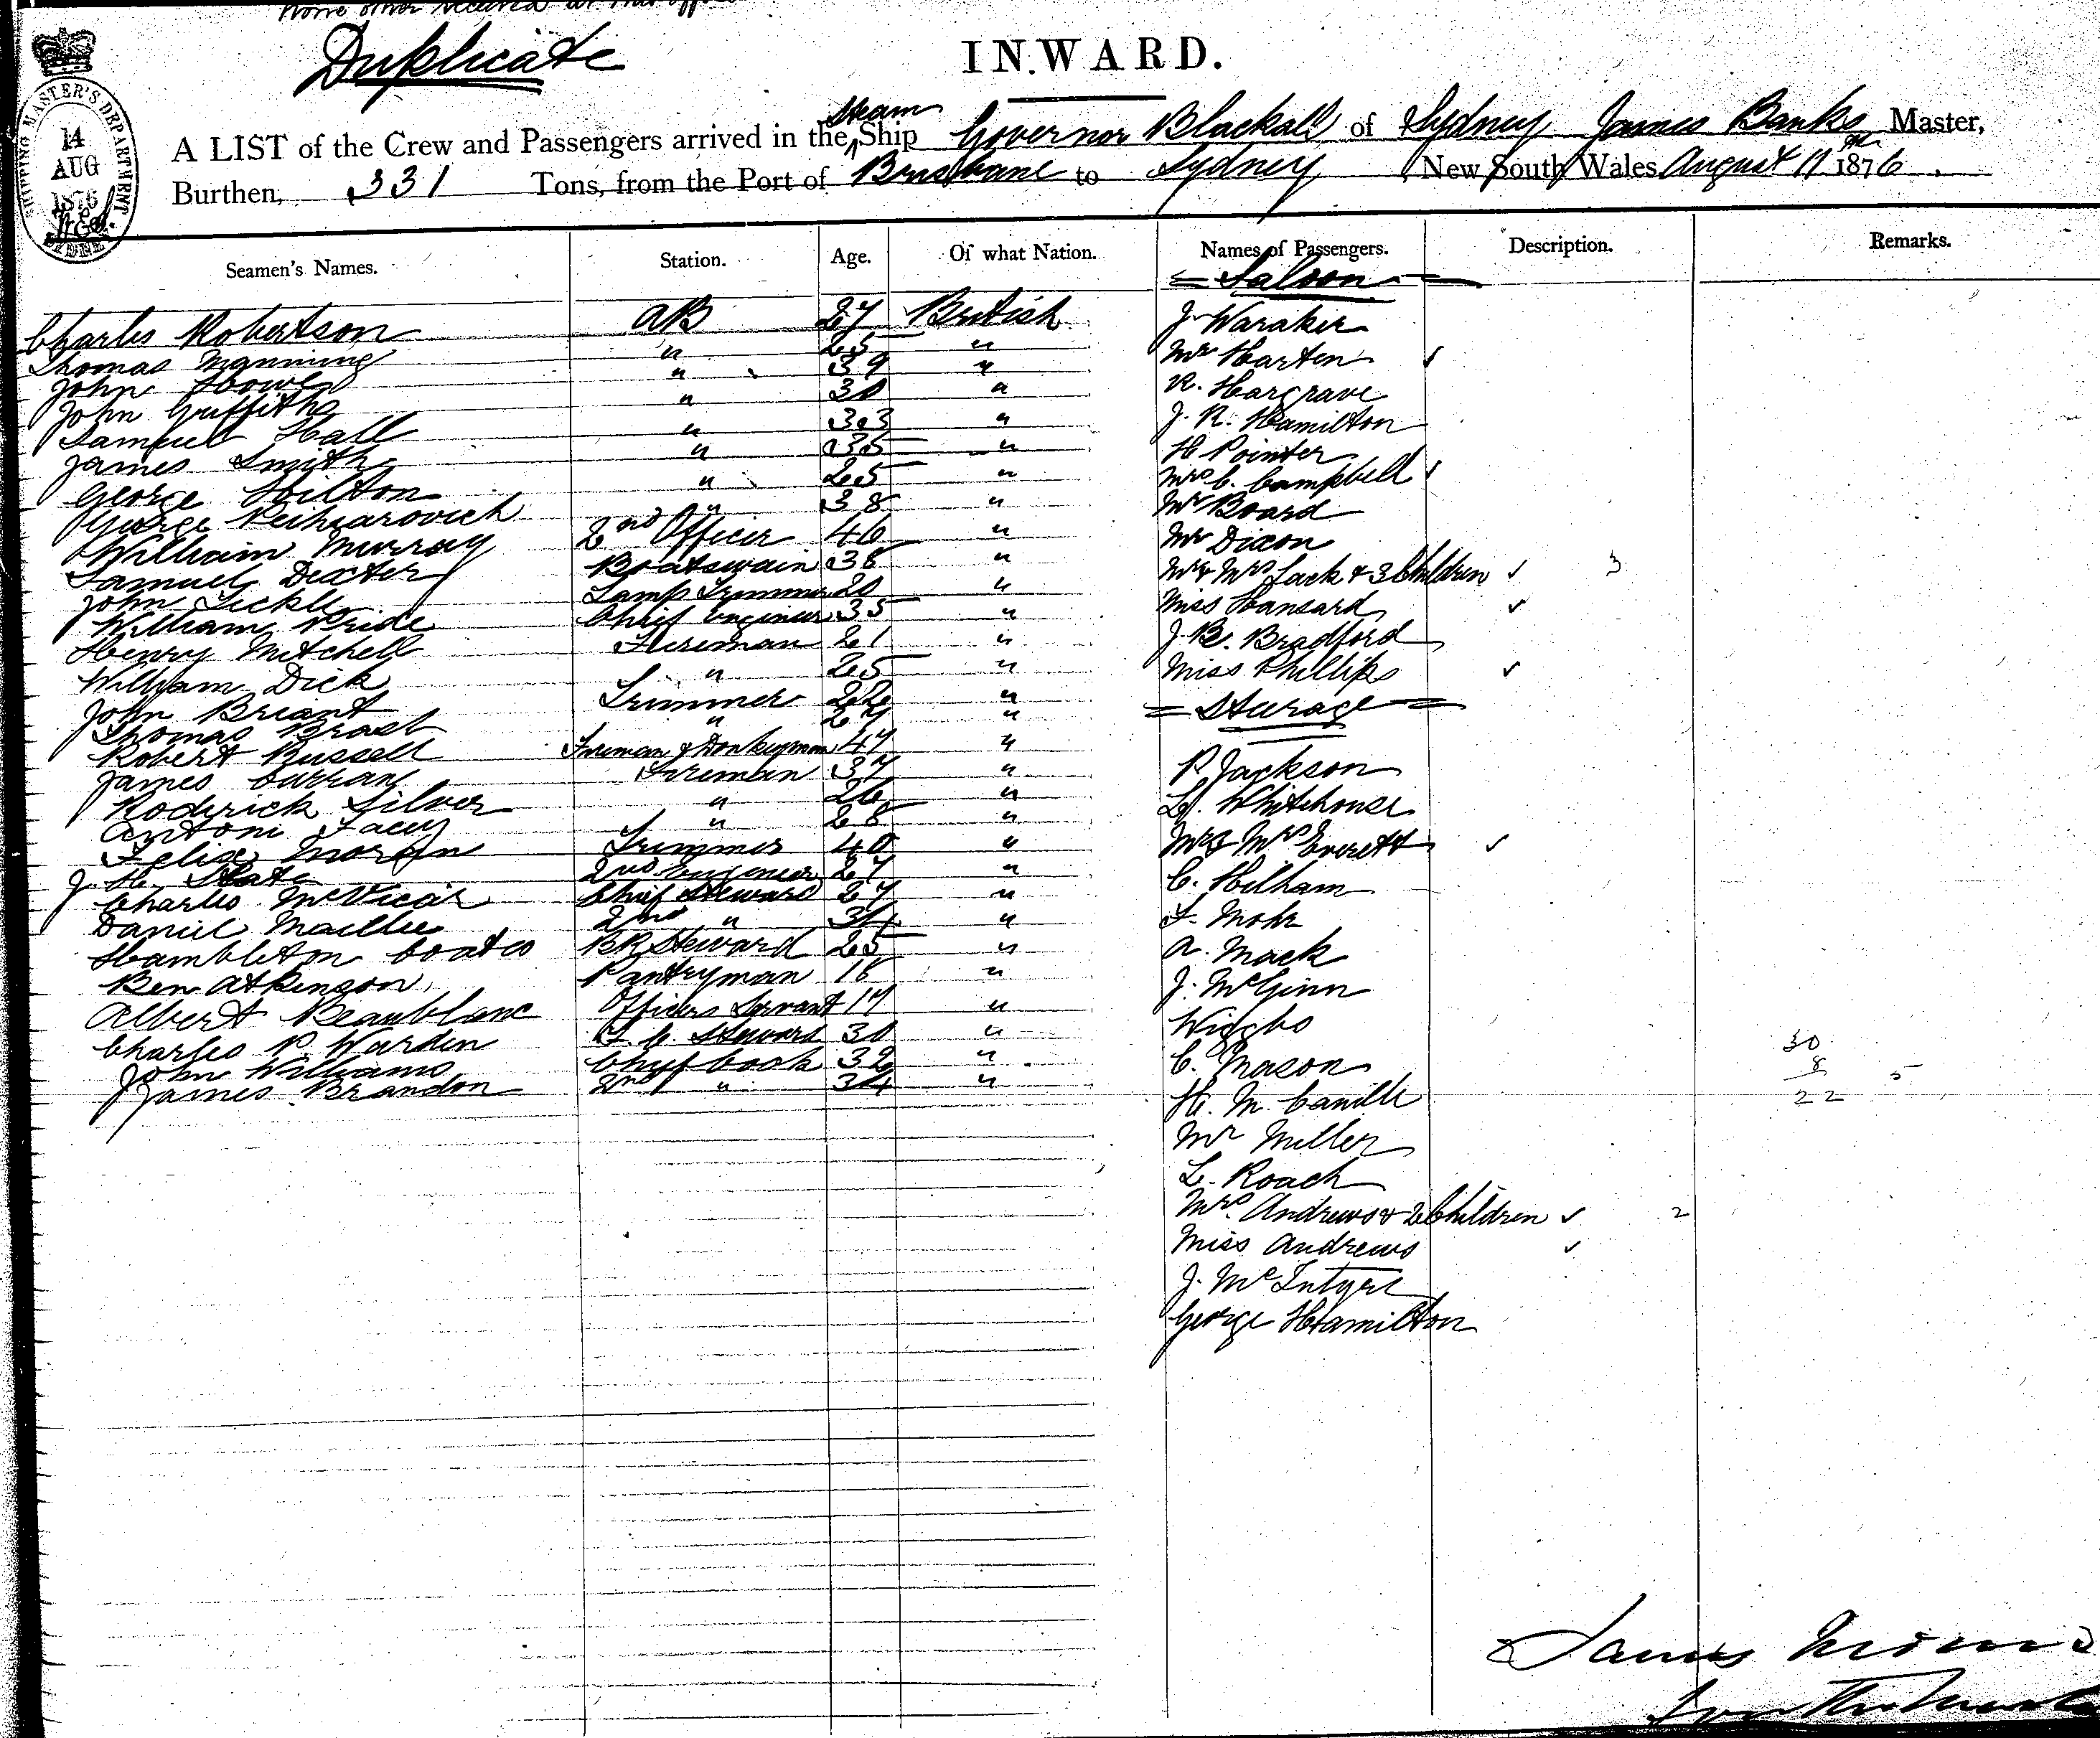 None other received at this office
Duplicate
INWARD.
SHIPPING MASTER'S DEPARTMENT
14
AUG
1876
A LIST of the Crew and Passengers arrived in the Steam Ship Governor Blackall of Sydney James Banks Master,
Burthen, 331 Tons, from the Port of Brisbane to Sydney New South Wales August 11th 1876.
Seamen's Names. Station. Age. Of what Nation. Names of Passengers. Description. Remarks.
= Saloon =
Charles Robertson AB 27 British J. Waraker
Thomas Manning " 25 " Mr Harten ✓
John Howe " 39 " R. Hargrave
John Griffiths " 30 " J. R. Hamilton
Samuel Hall " 33 " H Pointer
James Smith " 35 " Mrs C. Campbell ✓
George Hilton " 25 " Mr Board
George " 38 " Mr Dixon
William Murray 2nd Officer 46 " Mr & Mrs Jack & 3 Children ✓ 3
Samuel Dexter Boatswain 38 " Miss Hansard ✓
John Tickle Lamp Trimmer 20 " J. B. Bradford
William Pride Chief Engineer 35 " Miss Phillips ✓
Henry Mitchell Fireman 21 " = Steerage =
William Dick " 25 " P Jackson
John Briant Trimmer 22 " L. Whitehouse
Thomas Brast " 27 " Mr & Mrs Everett ✓
Robert Russell Fireman & Donkeyman 47 " C. Hilham
James Curran Fireman 37 " F. Mohr
Roderick Silver " 26 " A. Mack
Antoni Facey " 28 " J. McGinn
Felix Morgan Trimmer 40 " Wiggbo
J. H. Slate 2nd Engineer 27 " C. Mason
Charles McVicar Chief Steward 27 " H. M. Camille
Daniel Maillie 2nd " 34 " Mr Miller
Hambleton Coates BR Steward 25 " L. Roach
Ben Atkinson Pantryman 18 " Mrs Andrews & 2 Children ✓ 2
Albert Beaublanc Officers Servant 17 " Miss Andrews ✓
Charles P. Warden F. C. Steward 30 " J. McIntyre
John Williams Chief Cook 32 " George Hamilton
James Brandon 2nd " 34 "
30
8 5
22
James